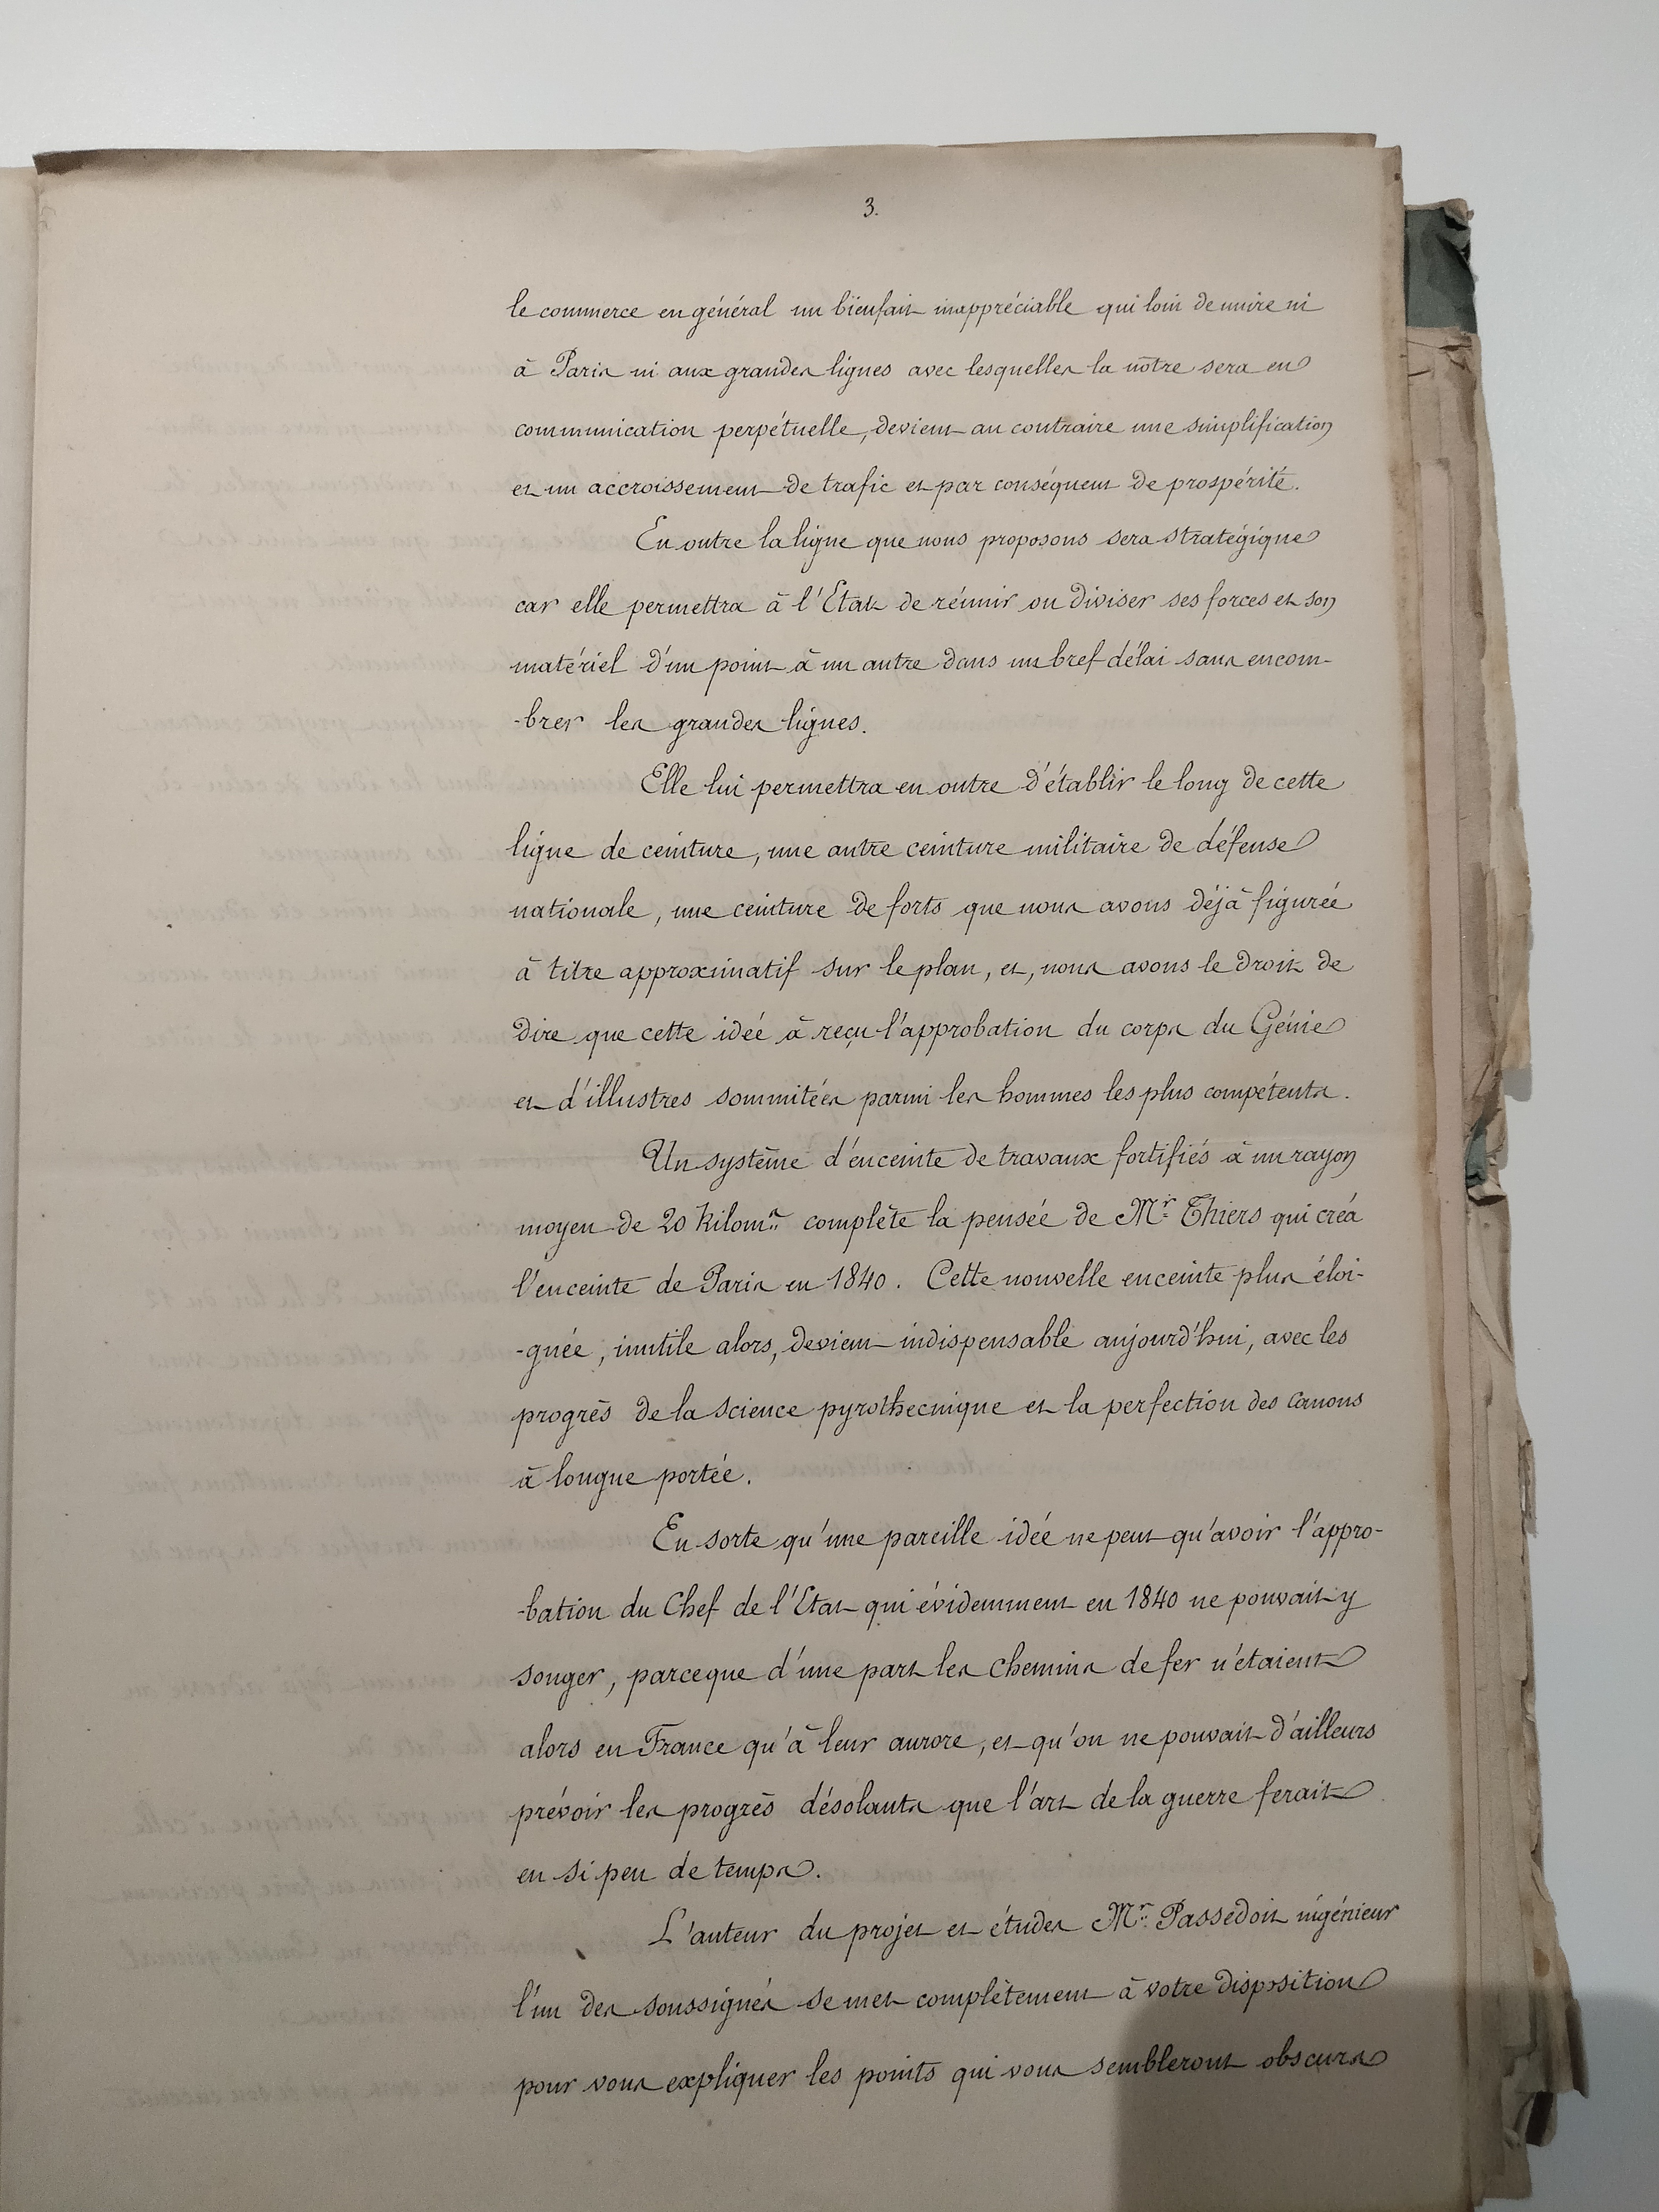 3.
le commerce en général un bienfait inappréciable qui loin de nuire ni
à Paris ni aux grandes lignes avec lesquelles la nôtre sera en
communication perpétuelle, devient au contraire une simplification
et un accroissement de trafic et par conséquent de prospérité.
En outre la ligne que nous proposons sera stratégique
car elle permettra à l'Etat de réunir ou diviser ses forces et son
matériel d'un point à un autre dans un bref délai sans encom-
-brer les grandes lignes.
Elle lui permettra en outre d'établir le long de cette
ligne de ceinture, une autre ceinture militaire de défense
nationale, une ceinture de forts que nous avons déjà figurée
à titre approximatif sur le plan, et, nous avons le droit de
dire que cette idée à reçu l'approbation du corps du Génie
et d'illustres sommitées parmi les hommes les plus compétents.
Un système d'enceinte de travaux fortifiés à un rayon
moyen de 20 kilom.s complète la pensée de Mr Thiers qui créa
l'enceinte de Paris en 1840. Cette nouvelle enceinte plus éloi-
-gnée, inutile alors, devient indispensable aujourd'hui, avec les
progrès de la science pyrothecnique et la perfection des canons
à longue portée.
En sorte qu'une pareille idée ne peut qu'avoir l'appro-
-bation du Chef de l'Etat qui évidemment en 1840 ne pouvait y
songer, parceque d'une part les chemins de fer n'étaient
alors en France qu'à leur aurore, et qu'on ne pouvait d'ailleurs
prévoir les progrès désolants que l'art de la guerre ferait
en si peu de temps.
L'auteur du projet et études Mr Passedoit ingénieur
l'un des soussignés se met complètement à votre disposition
pour vous expliquer les points qui vous sembleront obscurs